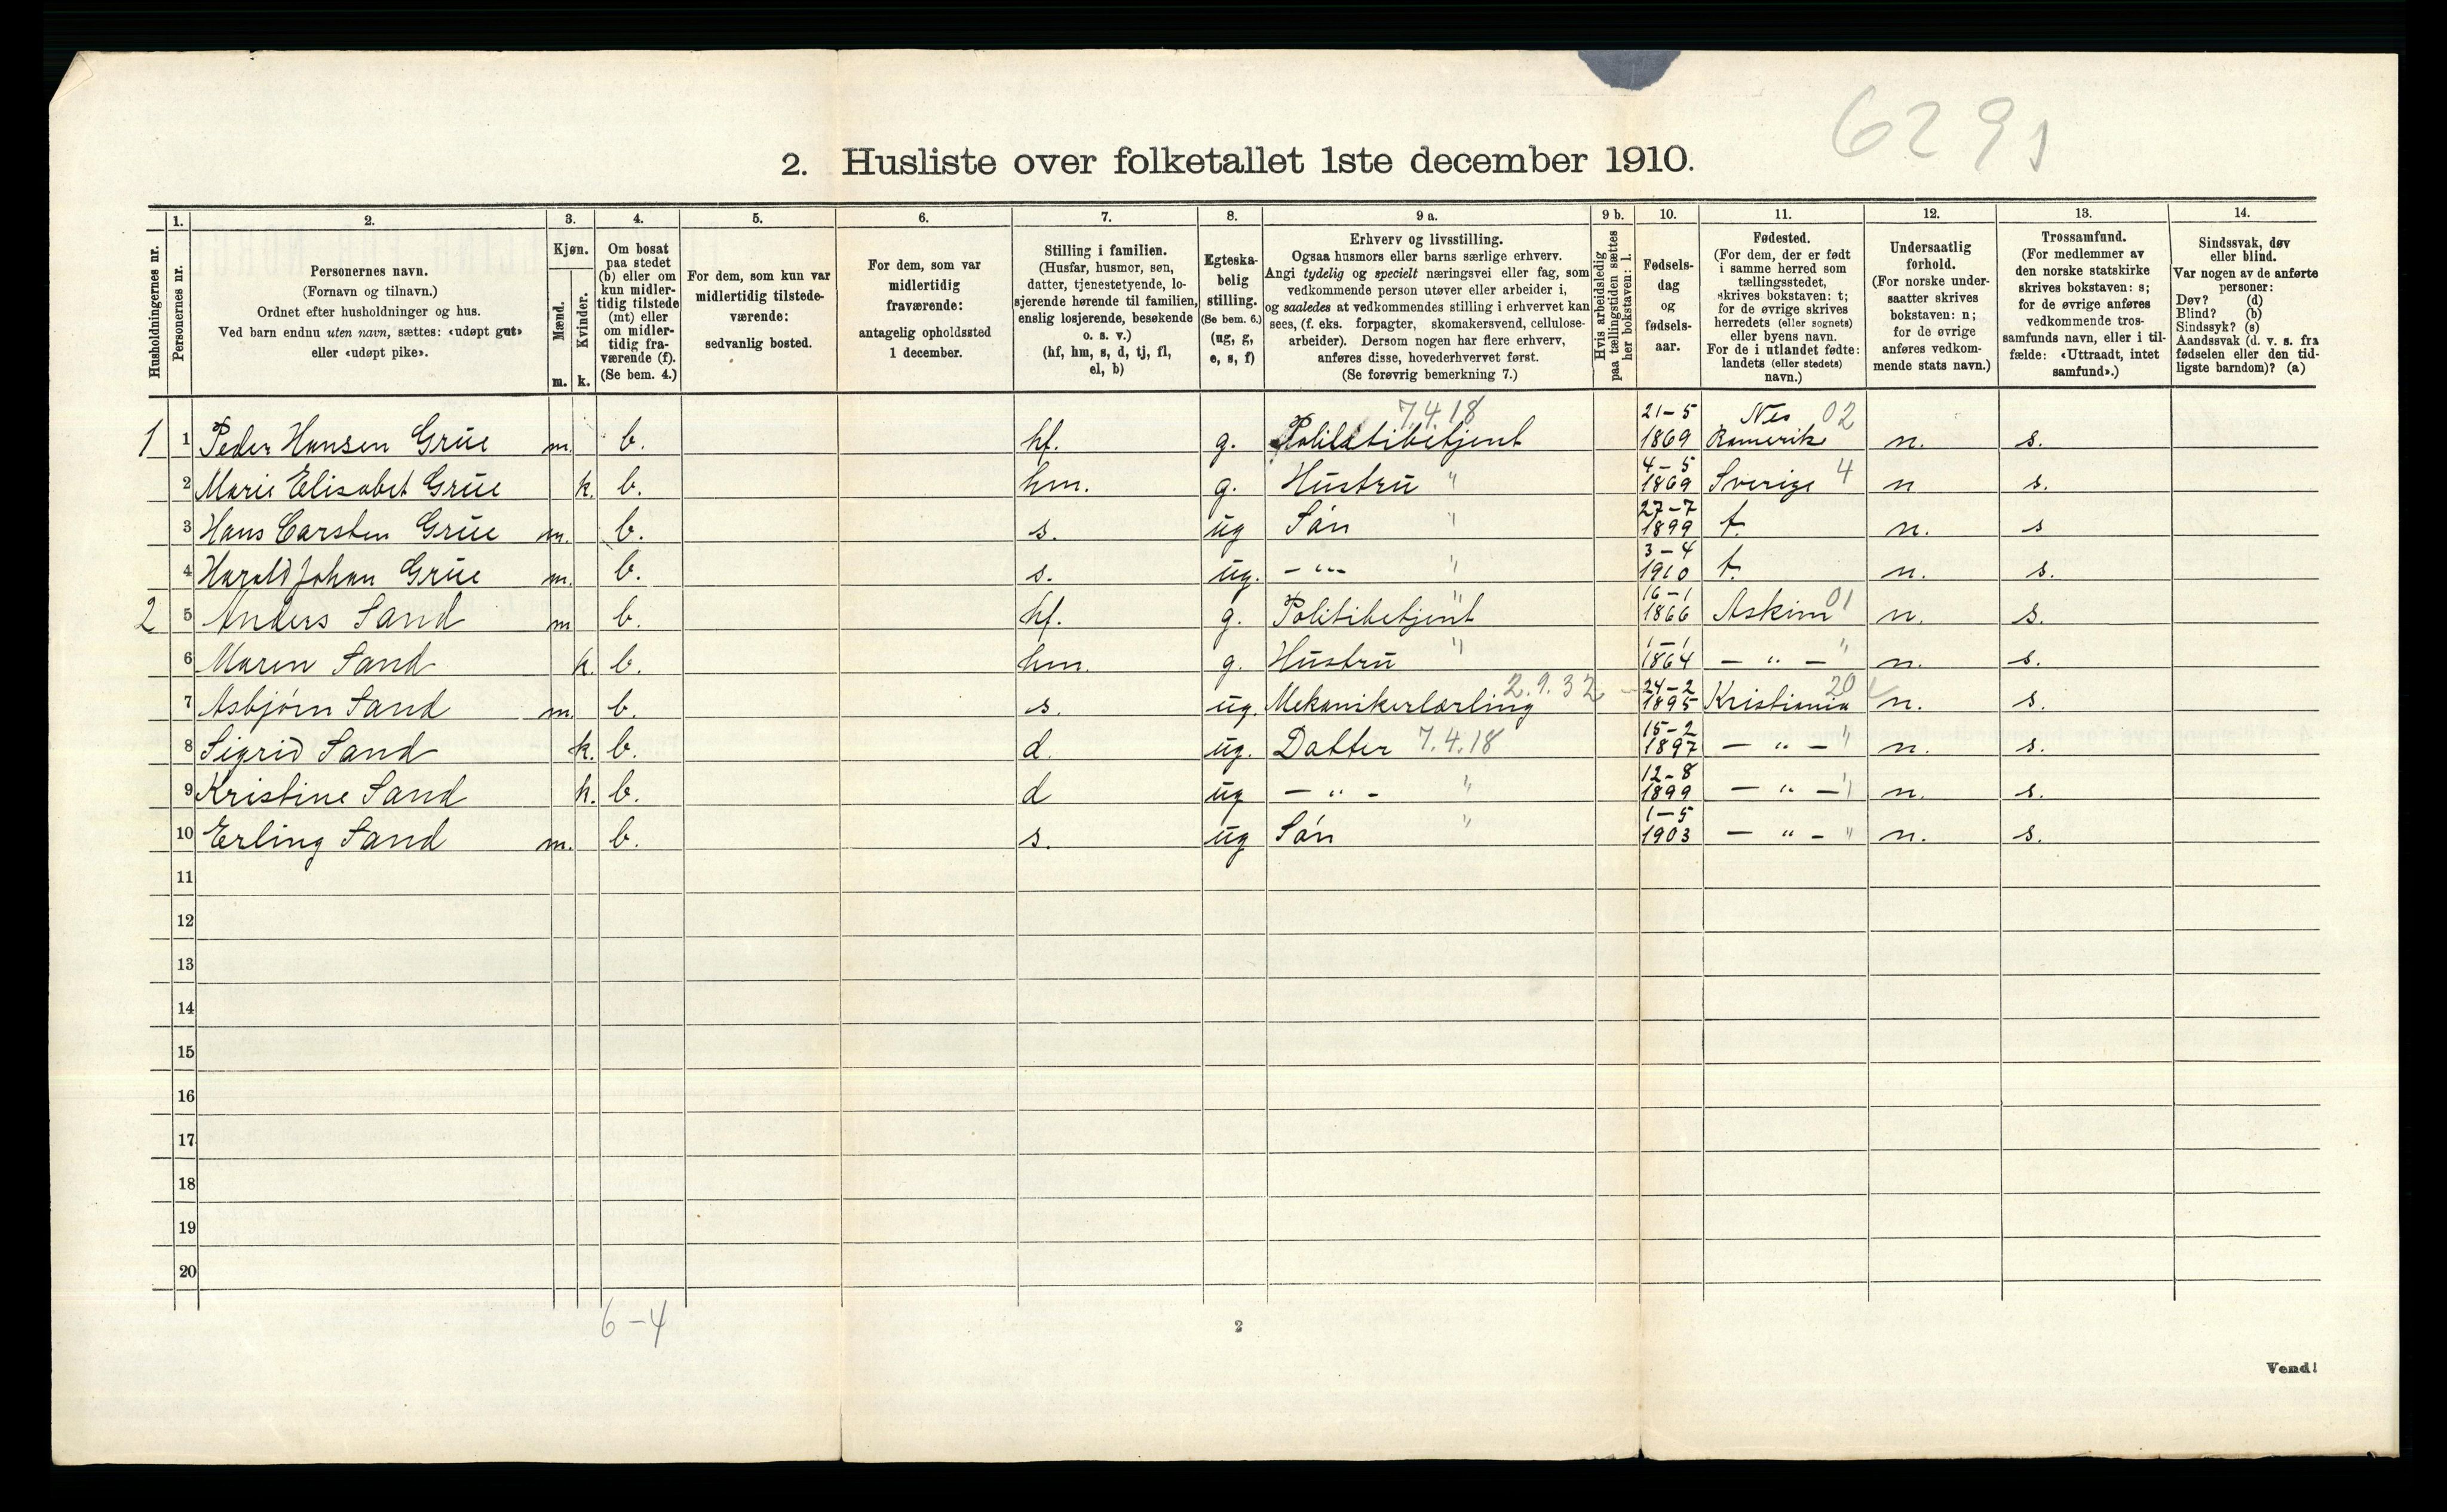 6291
2. Husliste over folketallet 1ste december 1910.
Husholdningernes nr.
1. Personernes nr.
2. Personernes navn.
(Fornavn og tilnavn.)
Ordnet efter husholdninger og hus.
Ved barn endnu uten navn, sættes: «udøpt gut»
eller «udøpt pike».
3. Kjøn.
Mænd. m.
Kvinder. k.
4. Om bosat
paa stedet
(b) eller om
kun midler-
tidig tilstede
(mt) eller
om midler-
tidig fra-
værende (f).
(Se bem. 4.)
5. For dem, som kun var
midlertidig tilstede-
værende:
sedvanlig bosted.
6. For dem, som var
midlertidig
fraværende:
antagelig opholdssted
1 december.
7. Stilling i familien.
(Husfar, husmor, søn,
datter, tjenestetyende, lo-
sjerende hørende til familien,
enslig losjerende, besøkende
o. s. v.)
(hf, hm, s, d, tj, fl,
el, b)
8. Egteska-
belig
stilling.
(Se bem. 6.)
(ug, g,
e, s, f)
9 a. Erhverv og livsstilling.
Ogsaa husmors eller barns særlige erhverv.
Angi tydelig og specielt næringsvei eller fag, som
vedkommende person utøver eller arbeider i,
og saaledes at vedkommendes stilling i erhvervet kan
sees, (f. eks. forpagter, skomakersvend, cellulose-
arbeider). Dersom nogen har flere erhverv,
anføres disse, hovederhvervet først.
(Se forøvrig bemerkning 7.)
9 b. Hvis arbeidsledig
paa tællingstiden sættes
her bokstaven: l.
10. Fødsels-
dag
og
fødsels-
aar.
11. Fødested.
(For dem, der er født
i samme herred som
tællingsstedet,
skrives bokstaven: t;
for de øvrige skrives
herredets (eller sognets)
eller byens navn.
For de i utlandet fødte:
landets (eller stedets)
navn.)
12. Undersaatlig
forhold.
(For norske under-
saatter skrives
bokstaven: n;
for de øvrige
anføres vedkom-
mende stats navn.)
13. Trossamfund.
(For medlemmer av
den norske statskirke
skrives bokstaven: s;
for de øvrige anføres
vedkommende tros-
samfunds navn, eller i til-
fælde: «Uttraadt, intet
samfund».)
14. Sindssvak, døv
eller blind.
Var nogen av de anførte
personer:
Døv? (d)
Blind? (b)
Sindssyk? (s)
Aandssvak (d. v. s. fra
fødselen eller den tid-
ligste barndom)? (a)
1 1 Peder Hansen Grüe m. b. hf. g. Polititibetjent 7.4.18 21-5 1869 Nes Romerike 02 n. s.
2 Marie Elisabet Grüe k. b. hm. g. Hustru " 4-5 1869 Sverige 4 n s.
3 Hans Carsten Grüe m. b. s. ug Søn " 27-7 1899 t. n. s
4 Harald Johan Grüe m. b. s. ug. - " - " 3-4 1910 t. n. s.
2 5 Anders Sand m b. hf. g. Politibetjent " 16-1 1866 Askim 01 n. s.
6 Maren Sand k. b. hm. g. Hustru " 1-1 1864 - " - " n. s.
7 Asbjørn Sand m. b. s. ug. Mekanikerlærling 2.9.32 24-2 1895 Kristiania 20 n. s.
8 Sigrid Sand k. b. d. ug. Datter 7.4.18 15-2 1897 - " - " n. s.
9 Kristine Sand k. b. d ug - " - " 12-8 1899 - " - " n. s.
10 Erling Sand m. b. s. ug Søn " 1-5 1903 - " - " n. s.
11
12
13
14
15
16
17
18
19
20
6-4
2
Vend!